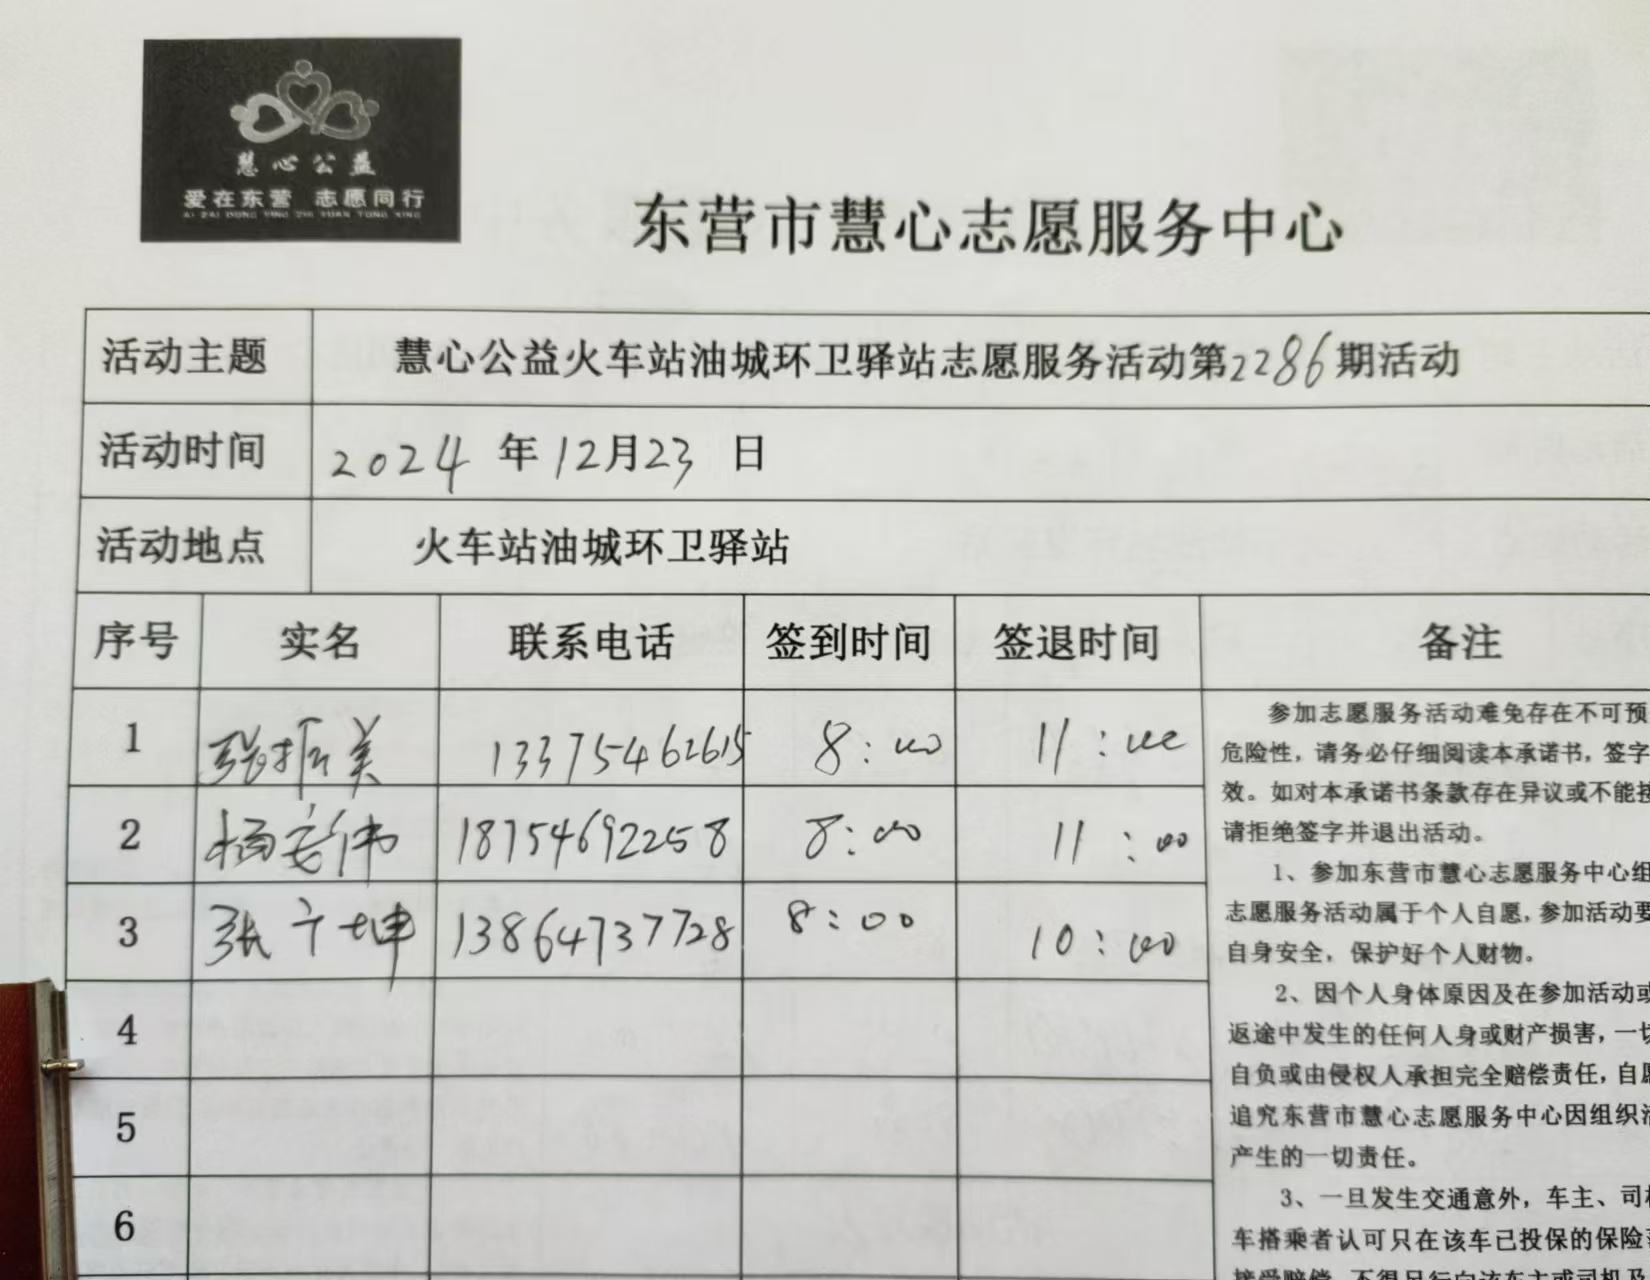 慧心公益
爱在东营 志愿同行
AI ZAI DONG YING ZHI YUAN TONG XING
东营市慧心志愿服务中心
活动主题 慧心公益火车站油城环卫驿站志愿服务活动第2286期活动
活动时间 2024 年 12月23 日
活动地点 火车站油城环卫驿站
序号 实名 联系电话 签到时间 签退时间 备注
1 张振美 13375462615 8:00 11:00
2 杨安伟 18754692258 8:00 11:00
3 张广坤 13864737728 8:00 10:00
4
5
6
参加志愿服务活动难免存在不可预
危险性，请务必仔细阅读本承诺书，签字
效。如对本承诺书条款存在异议或不能接
请拒绝签字并退出活动。
1、参加东营市慧心志愿服务中心组
志愿服务活动属于个人自愿，参加活动要
自身安全，保护好个人财物。
2、因个人身体原因及在参加活动或
返途中发生的任何人身或财产损害，一切
自负或由侵权人承担完全赔偿责任，自愿
追究东营市慧心志愿服务中心因组织活
产生的一切责任。
3、一旦发生交通意外，车主、司机
车搭乘者认可只在该车已投保的保险
接受赔偿，不得另行向该车主或司机及